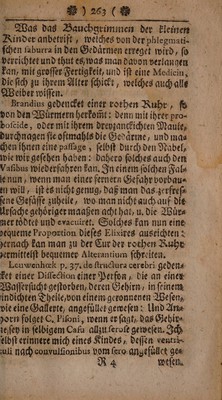 ( 263 )
Was das Bauchgrimmen der kleinen
Kinder anbetrifft, welches von der phlegmati-
schen saburra in den Gedärmen erreget wird, so
verrichtet und thut es, was man davon verlangen
kan, mit grosser Fertigkeit, und ist eine Medicin,
die sich zu ihrem Alter schickt, welches auch alle
Weiber wissen.
Brandius gedencket einer rothen Ruhr, so
von den Würmern herkomt: denn mit ihrer pro-
boscide, oder mit ihrem dreyzanckichten Maule,
durchnagen sie oftmahls die Gedärme, und ma-
chen ihnen eine passage, selbst durch den Nabel,
wie wir gesehen haben: dahero solches auch den
Vasibus wiederfahren kan. In einem solchen Fal-
wenn man einer fernern Gefahr vorbau-
en will, ist es nicht genug, daß man das zerfres-
sene Gefässe zuheile, wo man nicht auch auf die
Ursache gehöriger maaßen acht hat, u. die Wür-
mer tödtet und evacuiret. Solches kan nun eine
bequeme Proportion dieses Elixirs ausrichten:
hernach kan man zu der Cur der rothen Ruhr
vermittelst bequemer Alterantium schreiten.
Leuwenhoek p. 37. de structura cerebri geden-
cket einer Dissection einer Person, die an einer
Wassersucht gestorben, deren Gehirn, in seinem
windichten Theile, von einem geronnenen Wesen,
wie eine Gallerte, angefüllet gewesen: Und
horn folget C. Pisoni, wenn er sagt, das Gehir-
ne sey in selbigem Casu allzu serose gewesen. Ich
selbst erinnere mich eines Kindes, dessen ventri-
culi nach convulsionibus vom sero angefüllet ge-
R 4 wesen.